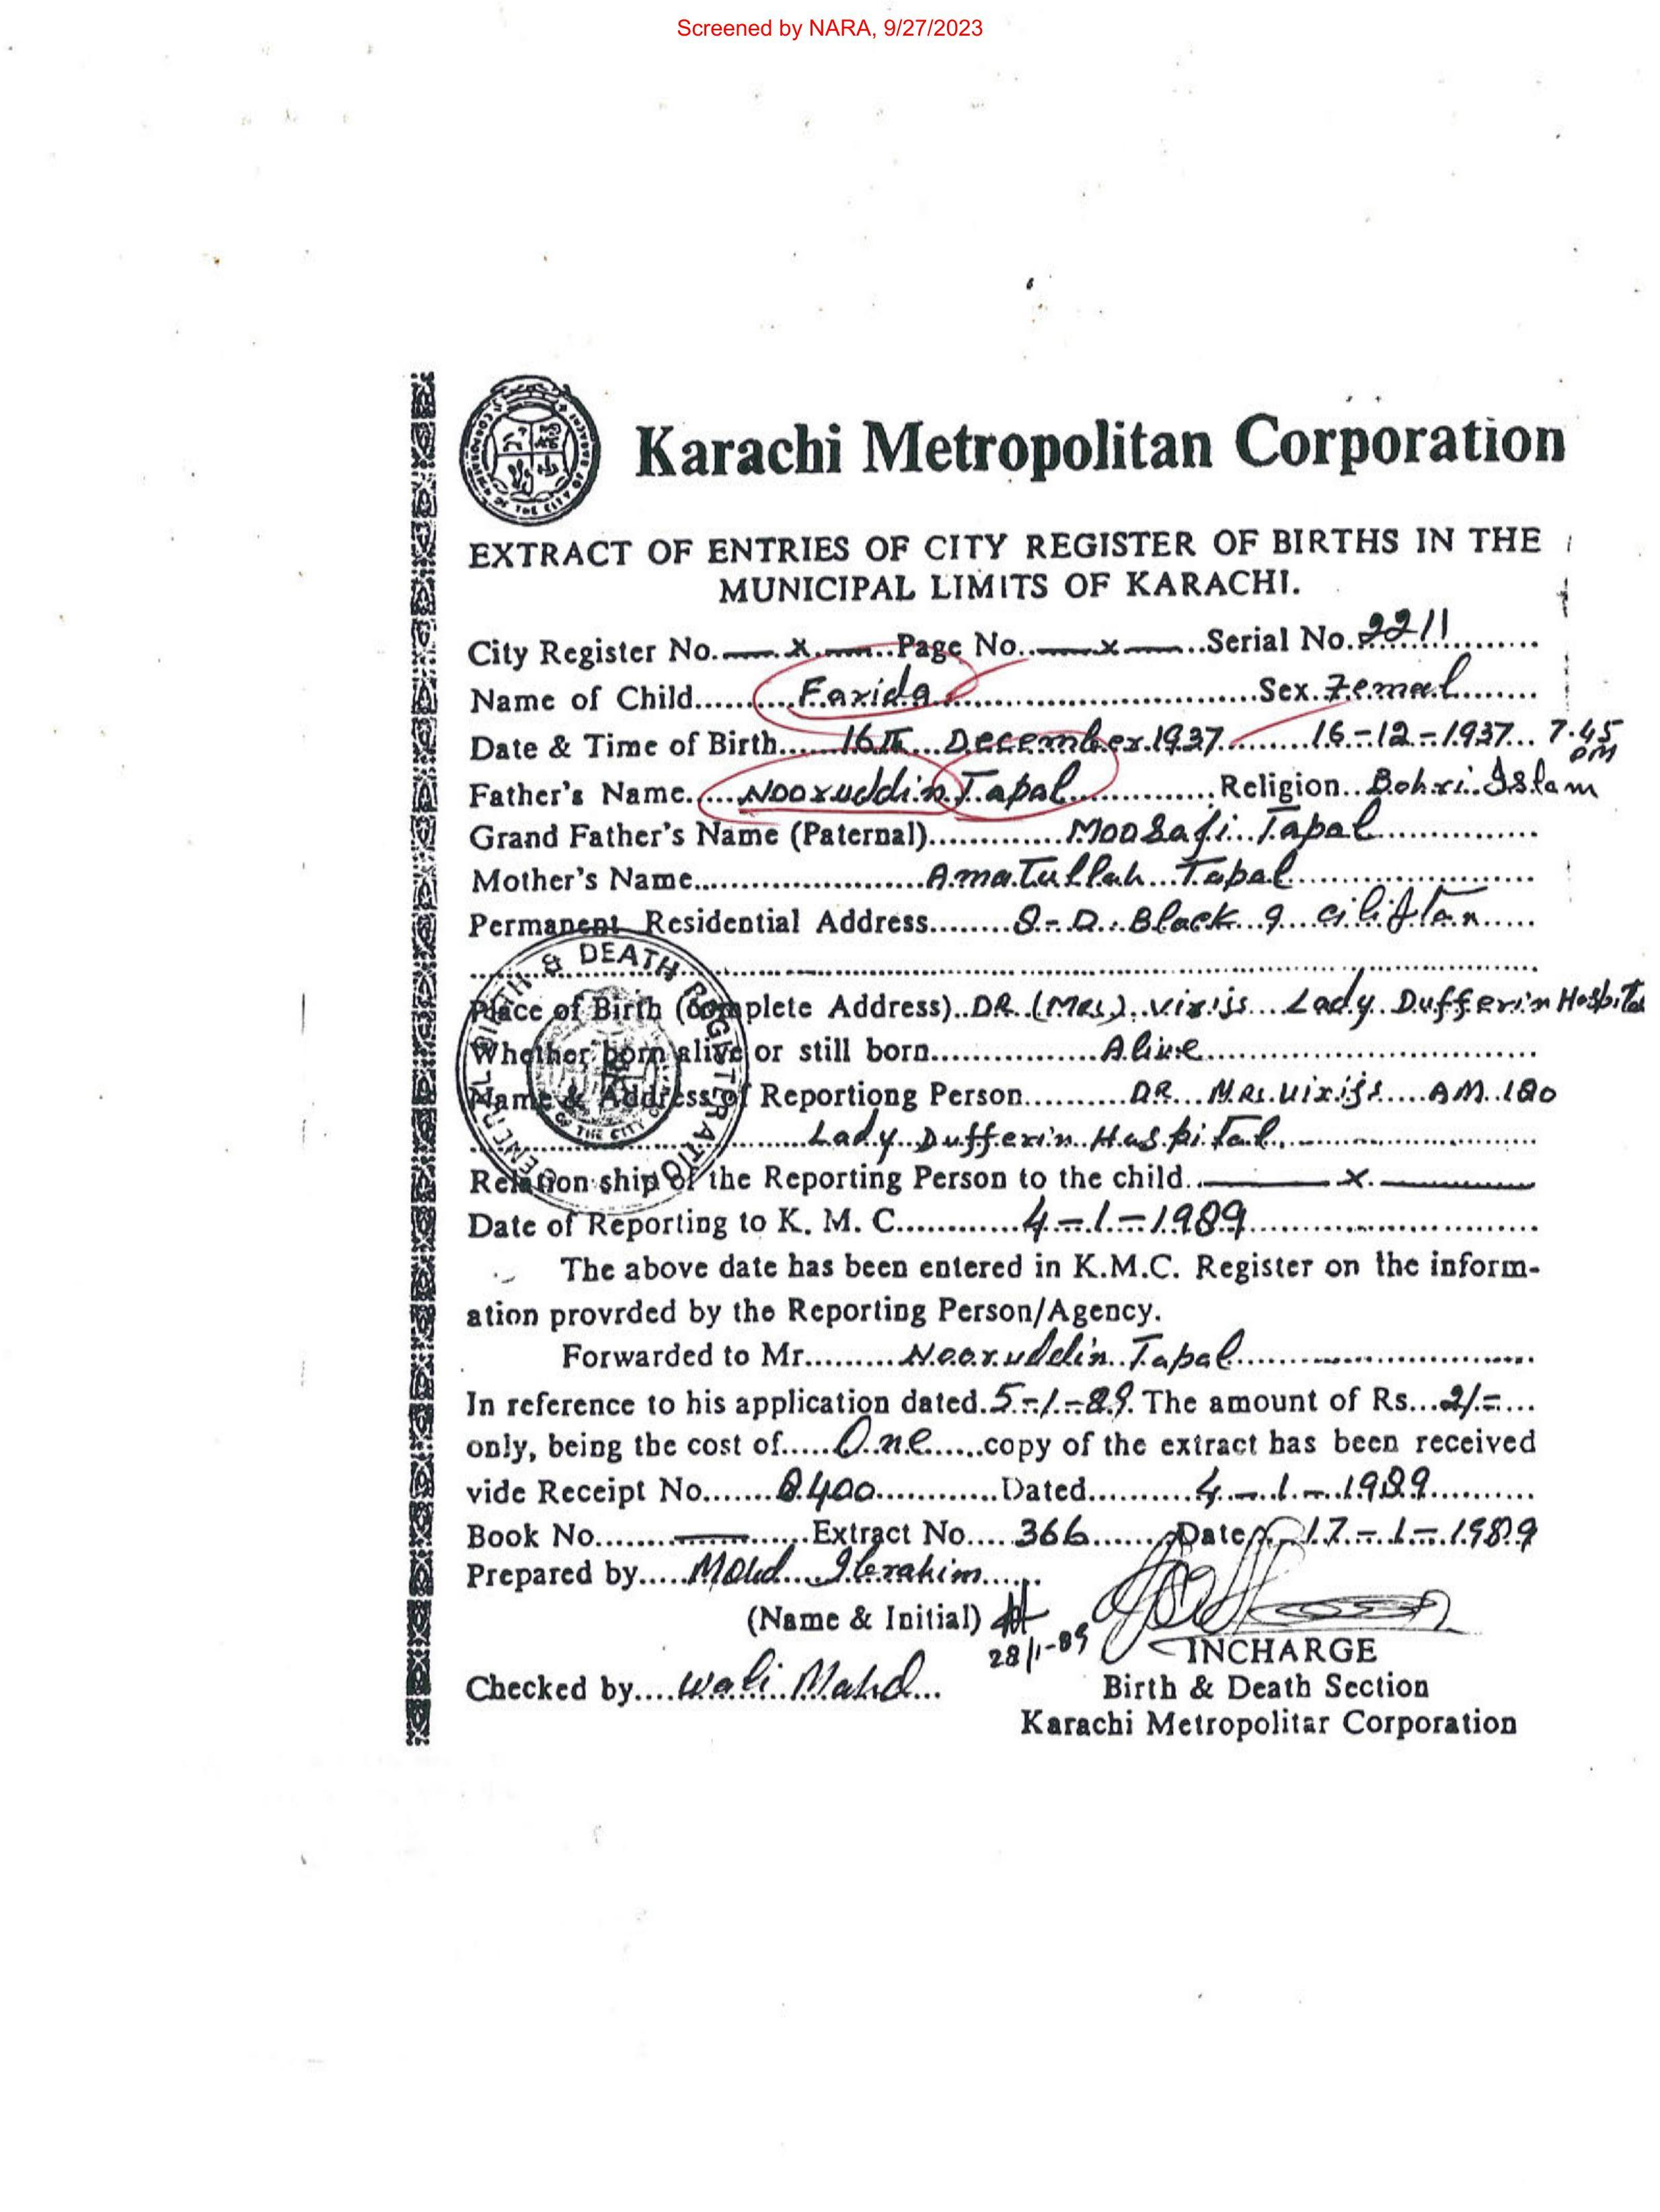 Screened by NARA, 9/27/2023
Karachi Metropolitan Corporation
EXTRACT OF ENTRIES OF CITY REGISTER OF BIRTHS IN THE
MUNICIPAL LIMITS OF KARACHI.
City Register No. x Page No. x Serial No. 2211
Name of Child Farida Sex. Femal
Date & Time of Birth 16th December 1937 16-12-1937 7.45 PM
Father's Name Nooruddin Tapal Religion Bohri Islam
Grand Father's Name (Paternal) Moosaji Tapal
Mother's Name Amatullah Tapal
Permanent Residential Address 8-D. Block 9
Place of Birth (complete Address) DR. (Mrs) Lady Dufferin Hospital
Whether born alive or still born Alive
Name & Address of Reportiong Person DR. Mrs.
Lady Dufferin Hospital
Relation ship of the Reporting Person to the child x
Date of Reporting to K. M. C. 4-1-1989
The above date has been entered in K.M.C. Register on the inform-
ation provrded by the Reporting Person/Agency.
Forwarded to Mr. Nooruddin Tapal
In reference to his application dated. 5-1-89. The amount of Rs. 2/=
only, being the cost of One copy of the extract has been received
vide Receipt No. 8400 Dated 4-1-1989
Book No. Extract No. 366 Date 17-1-1989
Prepared by Mohd Ibrahim
(Name & Initial)
28/1-89
INCHARGE
Checked by Wali Mohd
Birth & Death Section
Karachi Metropolitar Corporation
BIRTH & DEATH REGISTERATION
OF THE CITY